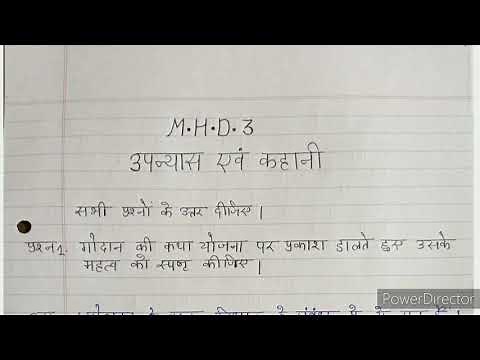 M.H.D.3
उपन्यास एवं कहानी
सभी प्रश्नों के उत्तर दीजिए।
प्रश्न1. गोदान की कथा योजना पर प्रकाश डालते हुए उसके
महत्व को स्पष्ट कीजिए।
PowerDirector